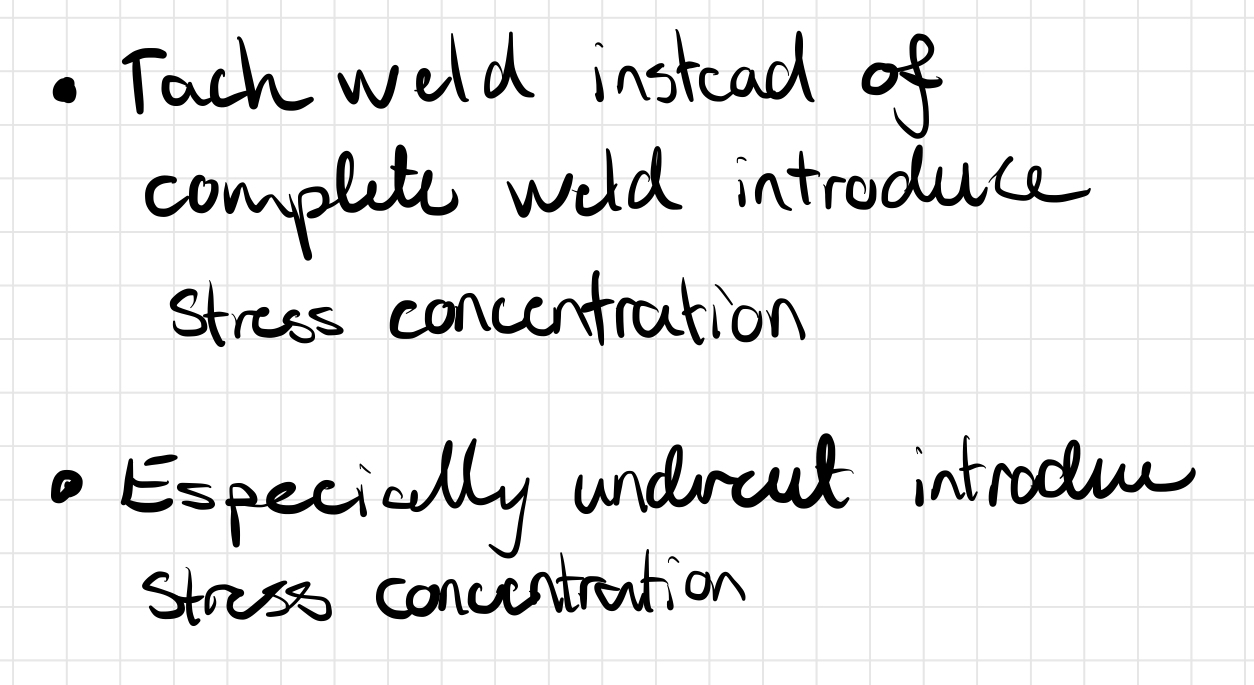 • Tach weld instead of
complete weld introduce
Stress concentration
• Especially undercut introduce
Stress concentration